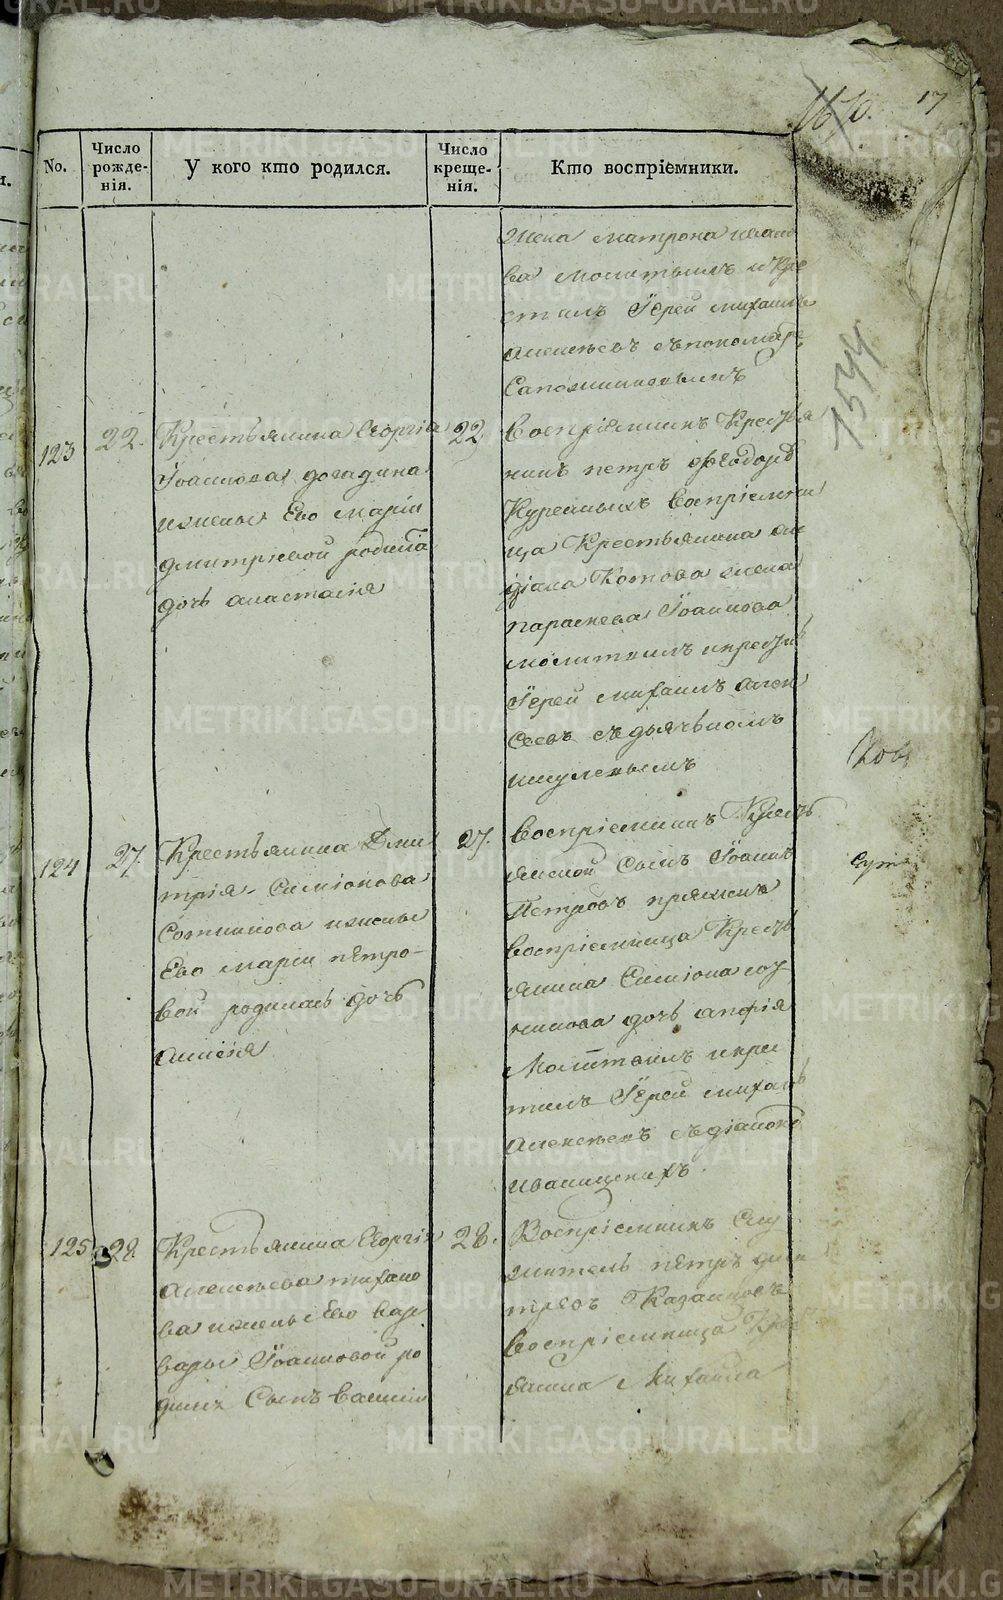 17
No.
Число рожденія.
У кого кто родился.
Число крещенія.
Кто воспріемники.
жена матрона
ва молитвилъ и кре
стилъ Іерей михаилъ
алексѣевъ съ пономаре
Сапожниковымъ
1544
123
22.
Крестьянина Георгія
Іоаннова догадина
и жены Ево маріи
дмитріевой родила
дочь анастасія
22
Воспріемникъ Крестья
нинъ петръ феодоръ
воспріемни
ца Крестьянина ан
Котова жена
параскева Іоаннова
молитвилъ и крести
Іерей михаилъ алек
сеевъ съ дьячькомъ
124
27.
Крестьянина Дми
трія Симіонова
Сотникова и жены
Ево маріи петро-
вой родилась дочь
27.
Воспріемникъ Крест
янской Сынъ Іоаннъ
Петровъ
воспріемница Крестъ
янина Симіона сот
никова дочь
Молитвилъ и кре
тилъ Іерей михаилъ
алексѣевъ съ діакономъ
иванищевихъ
125
28.
Крестьянина Георгія
алексѣева тихано
ва и жены Ево вар
вары Іоанновой ро
дился Сынъ васили
28.
Воспріемникъ Слу
житель петръ дми
тревъ Казанцовъ
воспріемница Крес
янина Михаила
METRIKI.GASO-URAL.RU